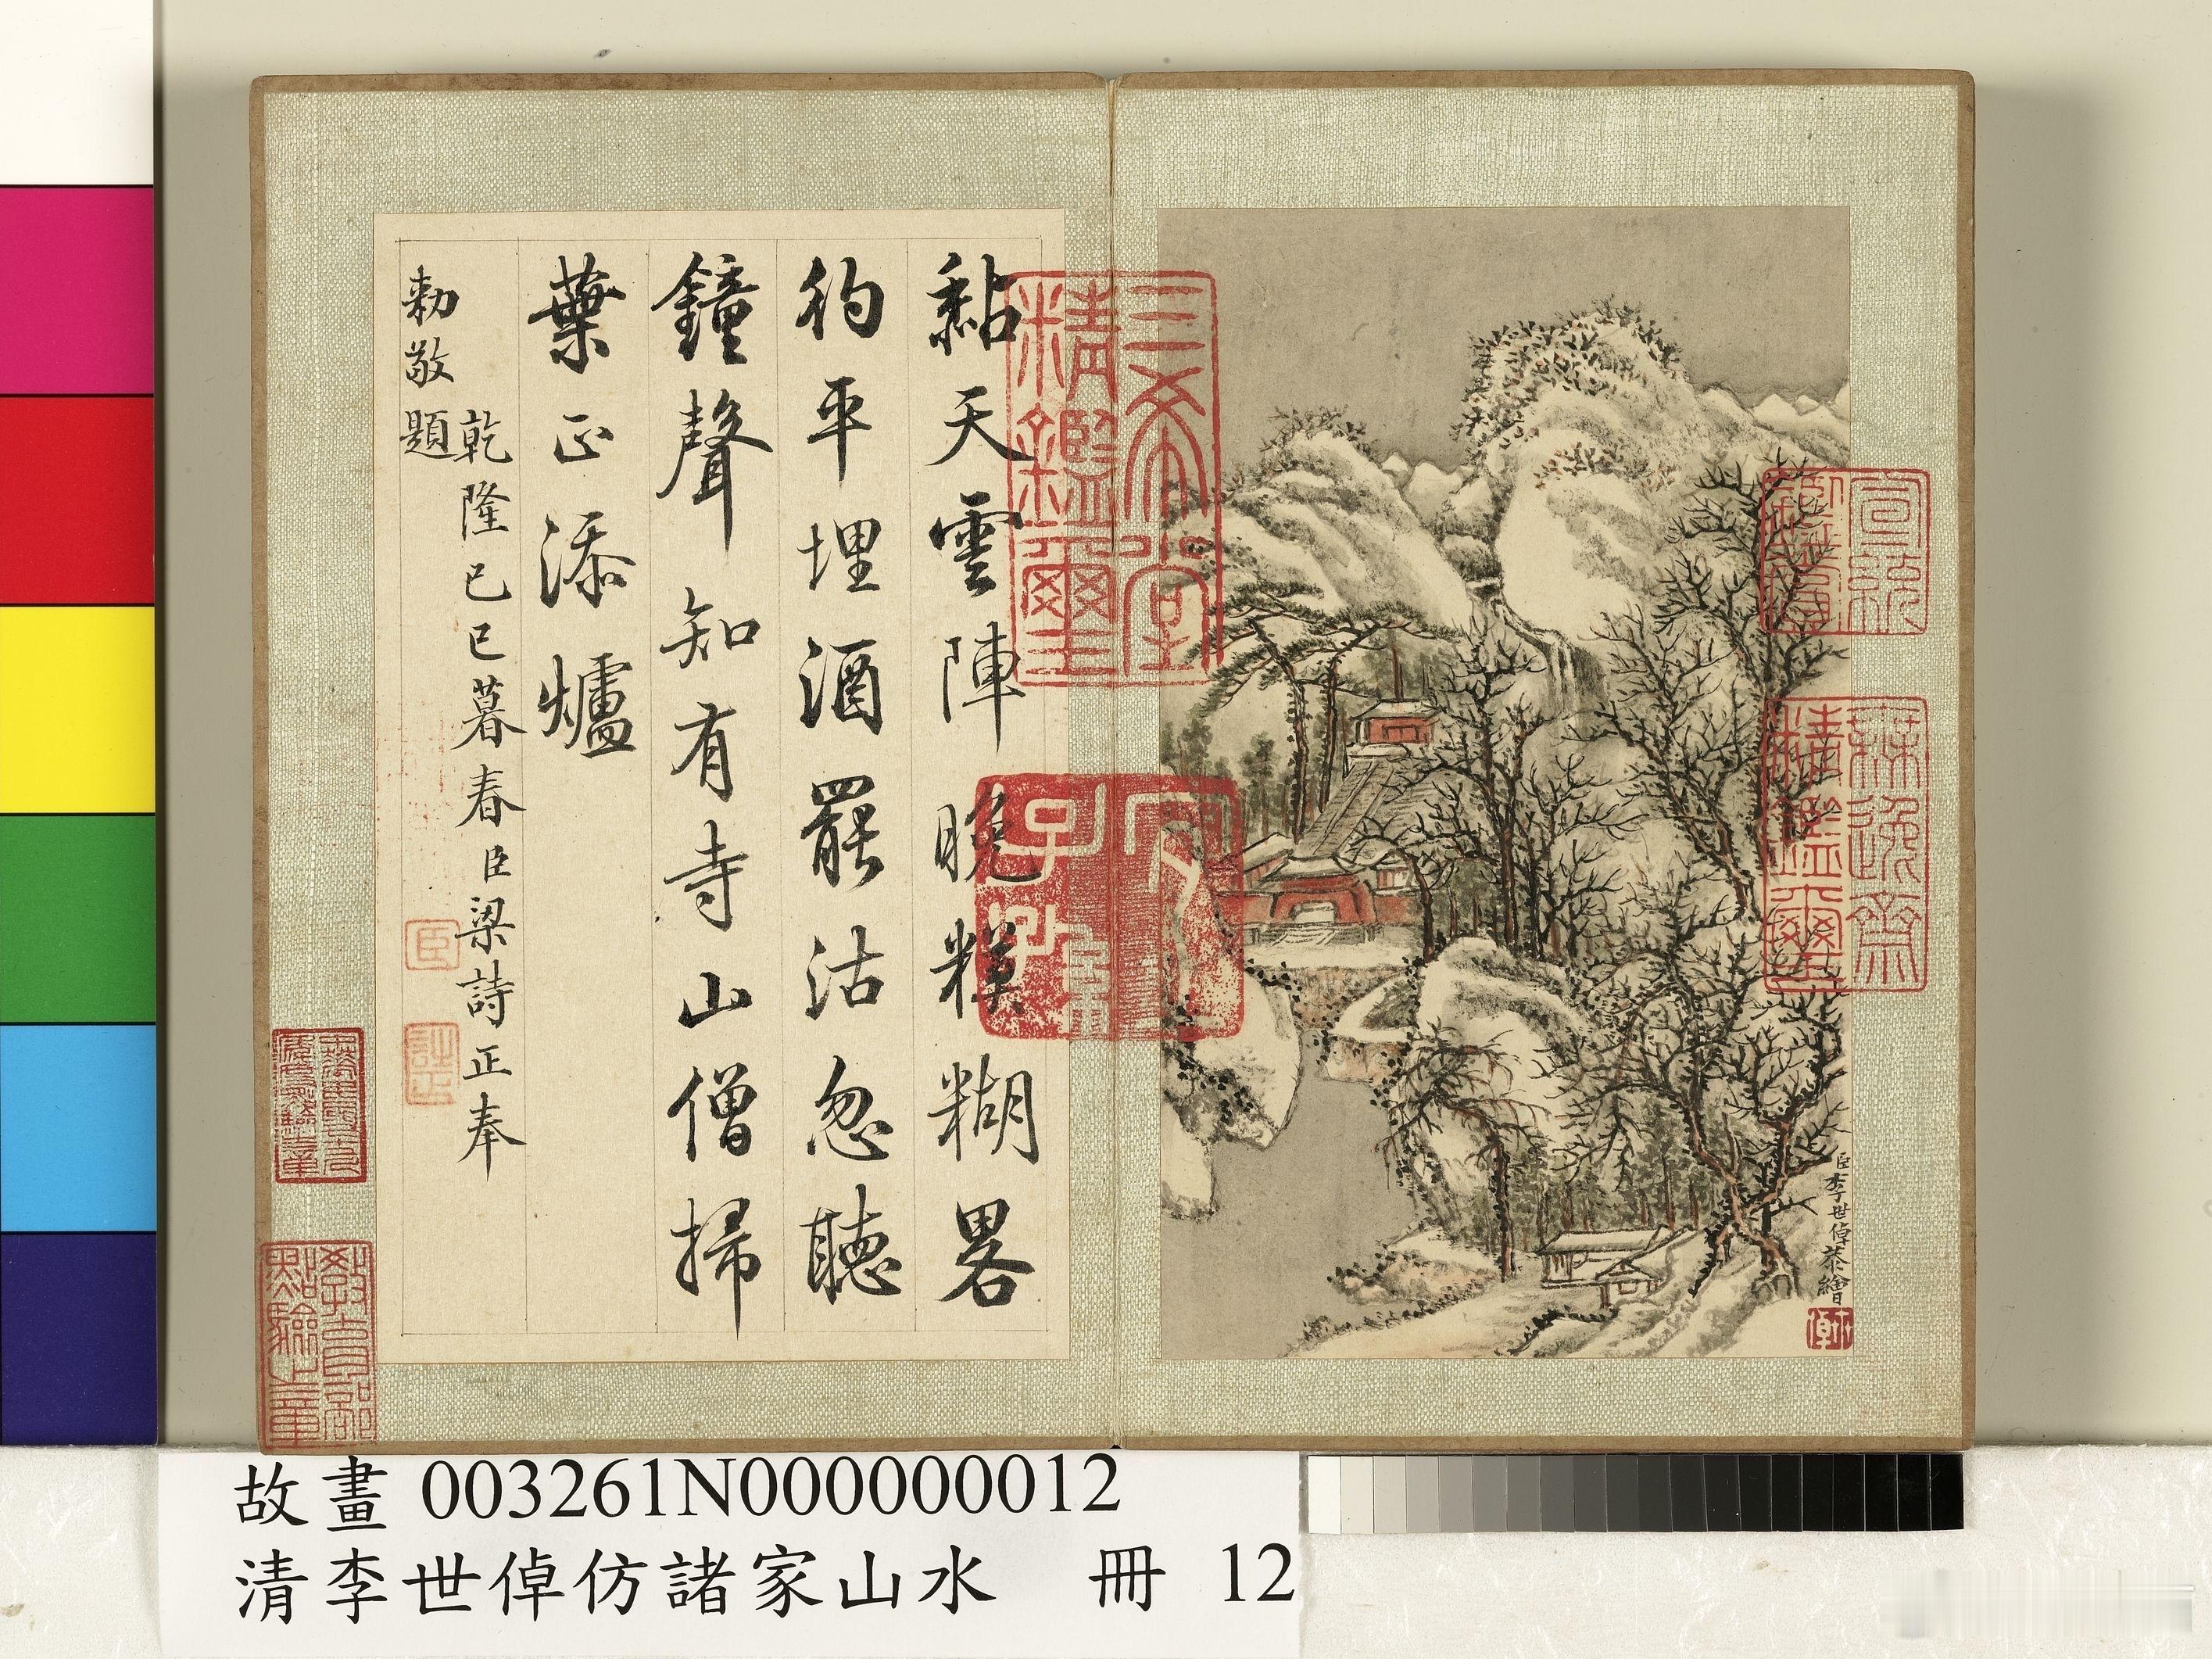 黏天雲陣晚糢糊畧
彴平埋酒罷沽忽聽
鐘聲知有寺山僧掃
葉正添爐
乾隆己巳暮春臣梁詩正奉
勅敬題
臣
詩正
臣李世倬恭繪
三希堂
精鑑璽
宜
子孫
宣統
鑑賞
無逸齋
精鑑璽
故畫 003261N000000012
清李世倬仿諸家山水 冊 12